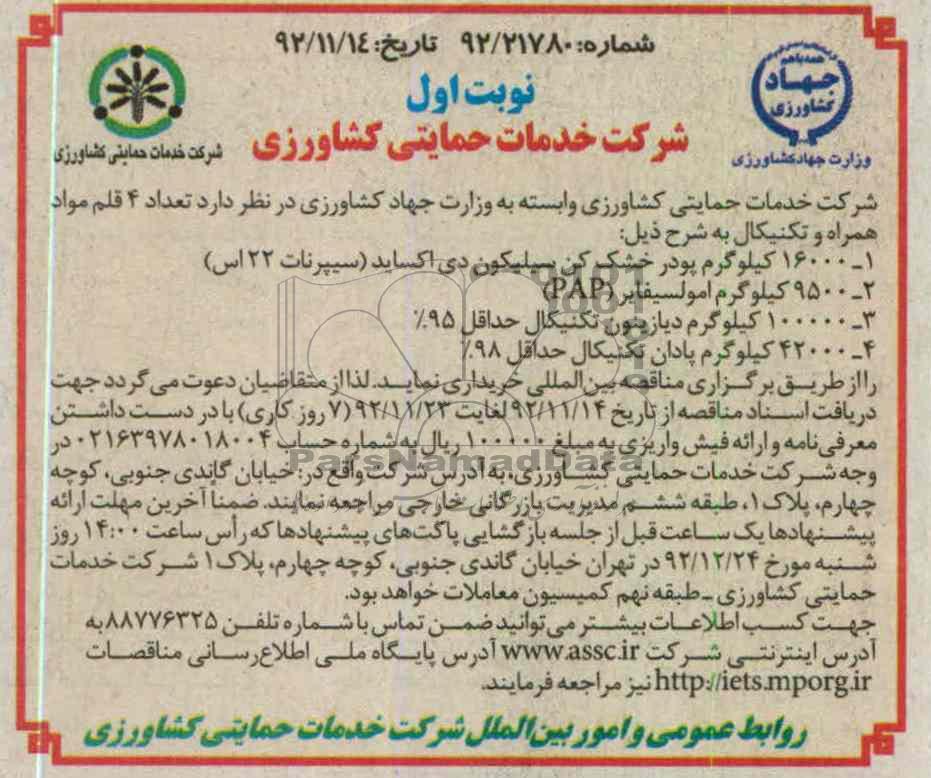 شماره: ۹۲/۲۱۷۸۰ تاریخ: ۹۲/۱۱/۱۴
نوبت اول
شرکت خدمات حمایتی کشاورزی
همه باهم
جهاد
کشاورزی
وزارت جهادکشاورزی
شرکت خدمات حمایتی کشاورزی
شرکت خدمات حمایتی کشاورزی وابسته به وزارت جهاد کشاورزی در نظر دارد تعداد ۴ قلم مواد
همراه و تکنیکال به شرح ذیل:
۱ـ ۱۶۰۰۰ کیلوگرم پودر خشک کن سیلیکون دی اکساید (سیپرنات ۲۲ اس)
۲ـ ۹۵۰۰ کیلوگرم امولسیفایر (PAP)
۳ـ ۱۰۰۰۰۰ کیلوگرم دیازینون تکنیکال حداقل ۹۵٪
۴ـ ۴۲۰۰۰ کیلوگرم پادان تکنیکال حداقل ۹۸٪
را از طریق برگزاری مناقصه بین‌المللی خریداری نماید. لذا از متقاضیان دعوت می گردد جهت
دریافت اسناد مناقصه از تاریخ ۹۲/۱۱/۱۴ لغایت ۹۲/۱۱/۲۳ (۷ روز کاری) با در دست داشتن
معرفی‌نامه و ارائه فیش واریزی به مبلغ ۱۰۰۰۰۰ ریال به شماره حساب ۰۲۱۶۳۹۷۸۰۱۸۰۰۴ در
وجه شرکت خدمات حمایتی کشاورزی، به آدرس شرکت واقع در: خیابان گاندی جنوبی، کوچه
چهارم، پلاک ۱، طبقه ششم مدیریت بازرگانی خارجی مراجعه نمایند. ضمناً آخرین مهلت ارائه
پیشنهادها یک ساعت قبل از جلسه بازگشایی پاکت‌های پیشنهادها که رأس ساعت ۱۴:۰۰ روز
شنبه مورخ ۹۲/۱۲/۲۴ در تهران خیابان گاندی جنوبی، کوچه چهارم، پلاک ۱ شرکت خدمات
حمایتی کشاورزی ـ طبقه نهم کمیسیون معاملات خواهد بود.
جهت کسب اطلاعات بیشتر می‌توانید ضمن تماس با شماره تلفن ۸۸۷۷۶۳۲۵ به
آدرس اینترنتی شرکت www.assc.ir آدرس پایگاه ملی اطلاع‌رسانی مناقصات
http://iets.mporg.ir نیز مراجعه فرمایند.
روابط عمومی و امور بین‌الملل شرکت خدمات حمایتی کشاورزی
ParsNamadData